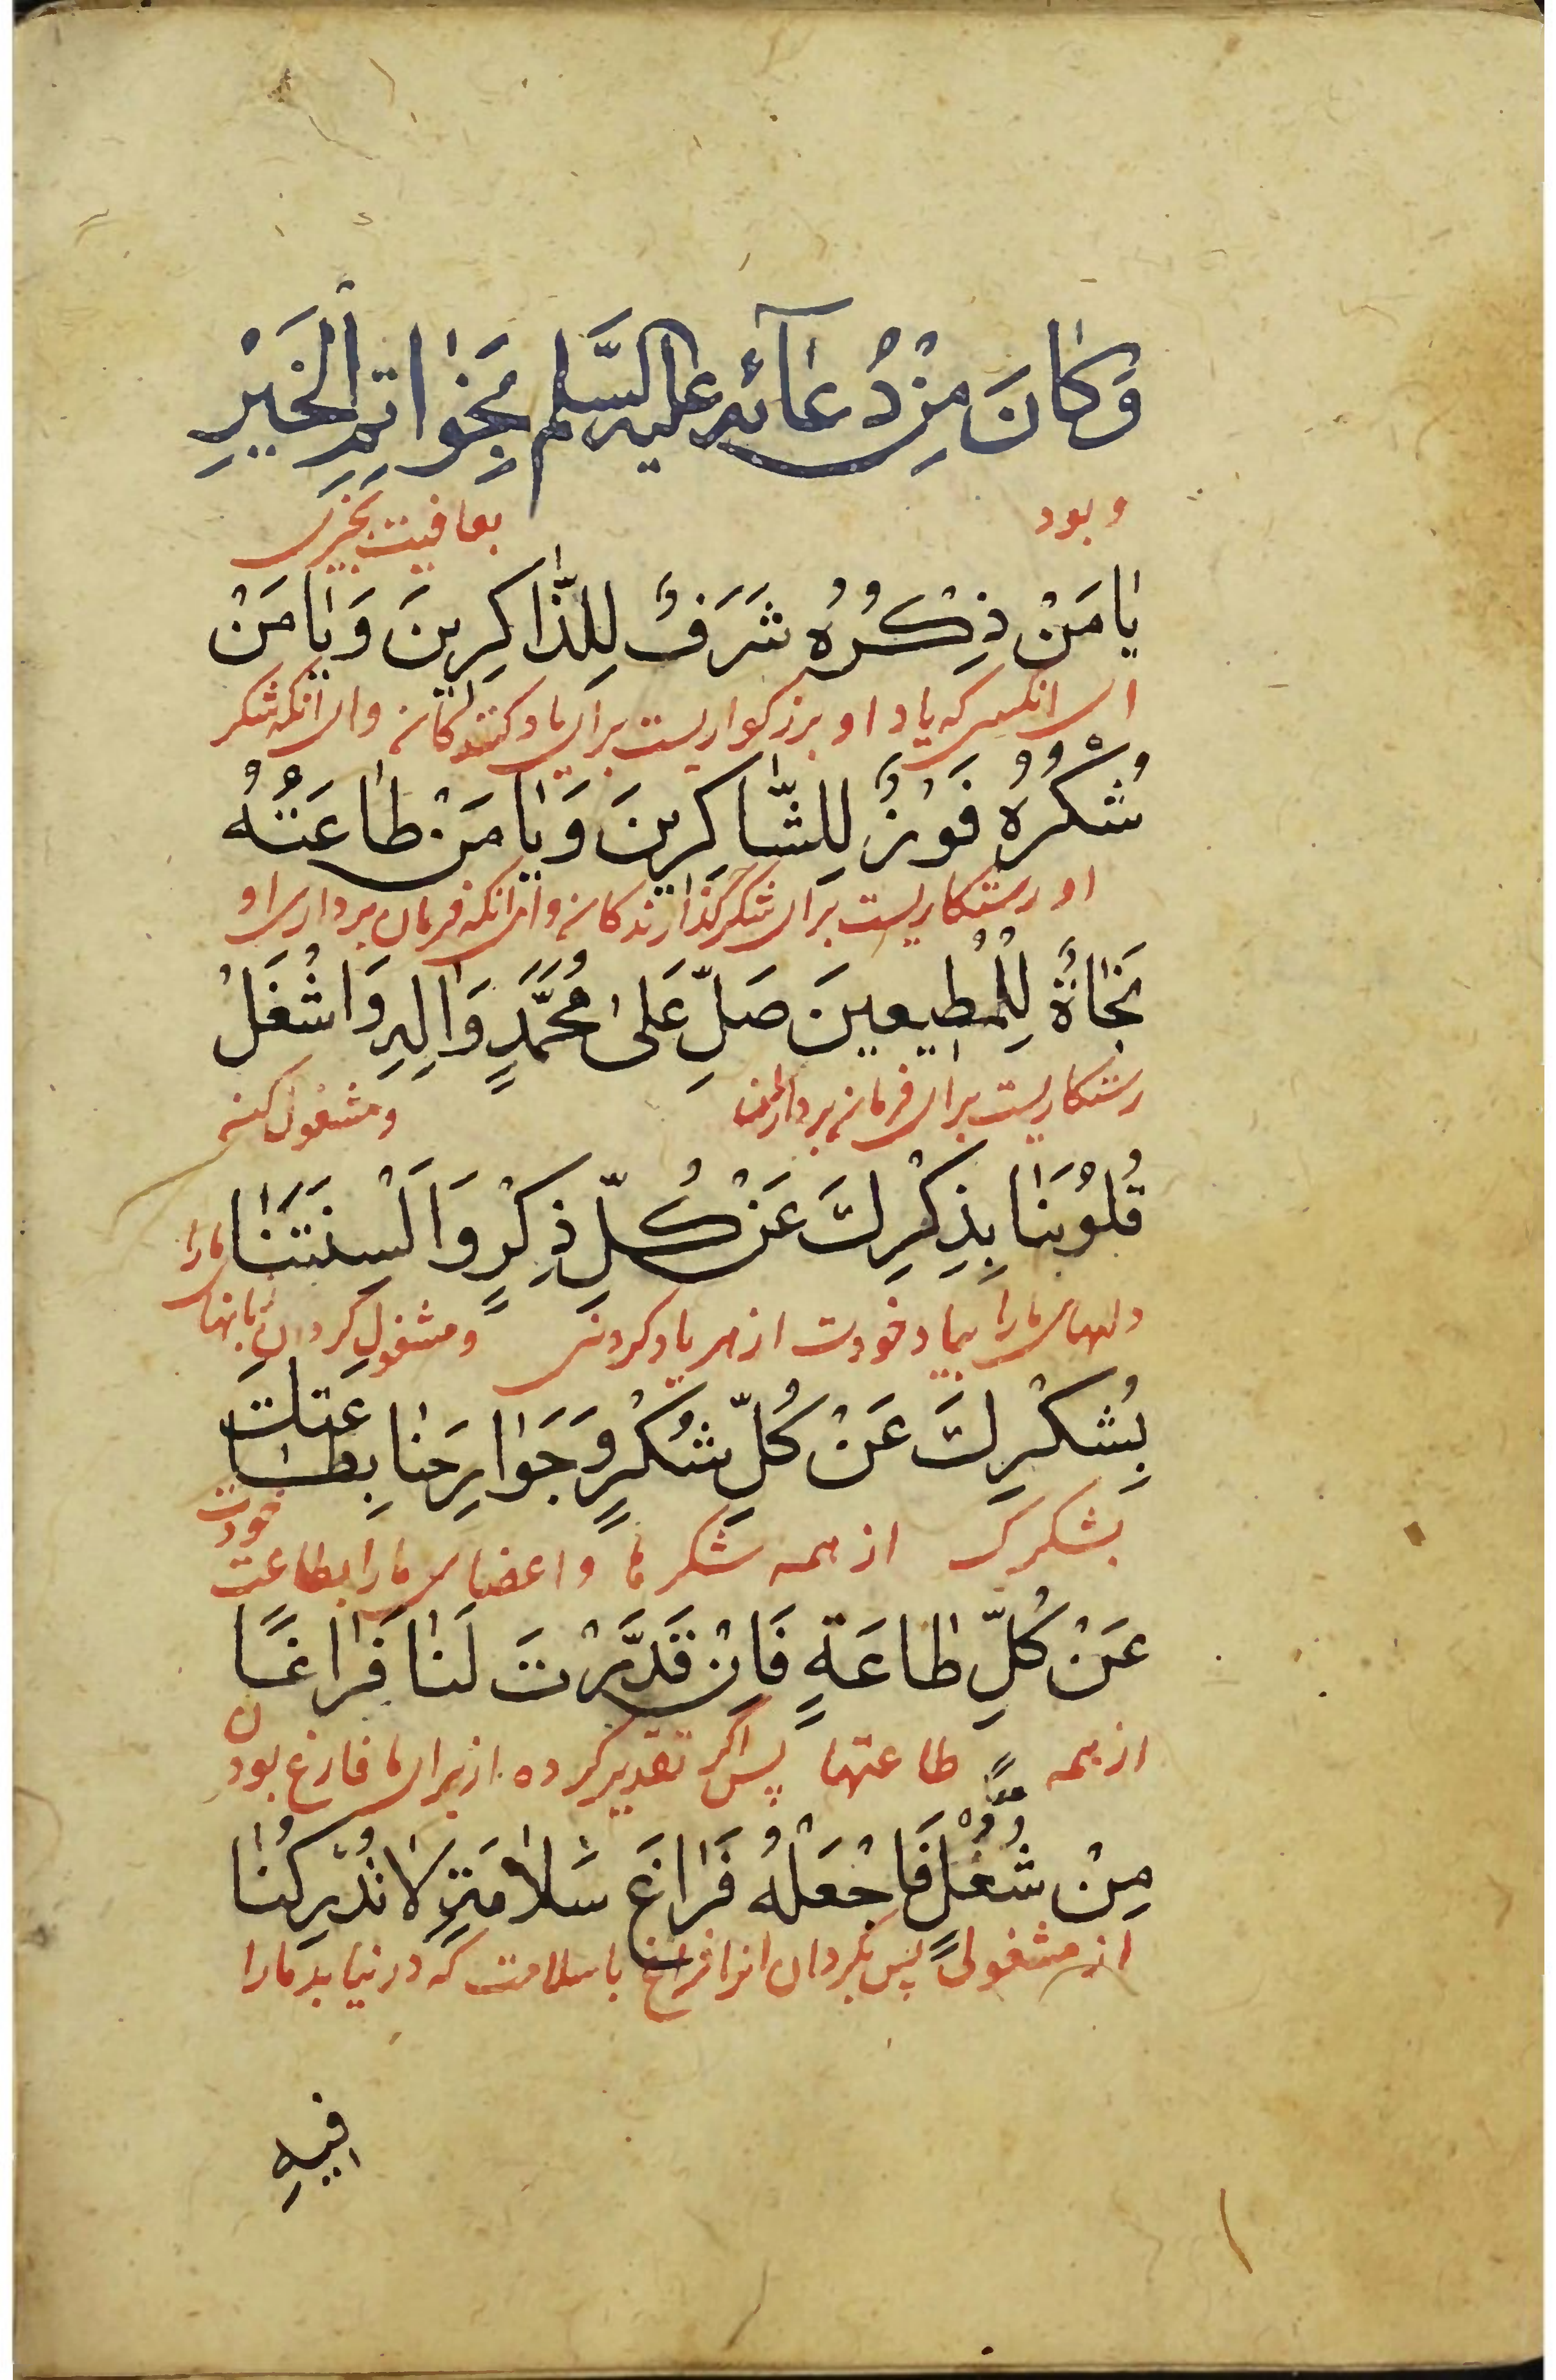 وَكَانَ مِنْ دُعَآئِهِ عليه السَّلم بِخَوَاتِمِ الْخَيْرِ
و بود بعافیت بخیری
يَامَنْ ذِكْرُهُ شَرَفٌ لِلذَّاكِرِينَ وَيَامَنْ
ای انکس که یاد او بزرکواریست برای یاد کنندکان وای انکه شکر
شُكْرُهُ فَوْزٌ لِلشَّاكِرِينَ وَيَامَنْ طَاعَتُهُ
او رستکاریست برای شکر گذارندکان وای انکه فرمان برداری او
نَجَاةٌ لِلْمُطِيعِينَ صَلِّ عَلَى مُحَمَّدٍ وَالِهِ وَاشْغَلْ
رستکاریست برای فرمان بردارانت ومشغول کن
قُلُوْبَنَا بِذِكْرِكَ عَنْ كُلِّ ذِكْرٍ وَاَلْسِنَتَنَا
دلهای مارا بیاد خودت از هر یاد کردنی ومشغول کردان زبانهای مارا
بِشُكْرِكَ عَنْ كُلِّ شُكْرٍ وَجَوَارِحَنَا بِطَاعَتِكَ
بشکرک از همه شکرها واعضای مارا بطاعت خودت
عَنْ كُلِّ طَاعَةٍ فَاِنْ قَدَّرْتَ لَنَا فَرَاغًا
از همه طاعتها پس اکر تقدیر کرده از برای ما فارغ بودن
مِنْ شُغْلٍ فَاجْعَلْهُ فَرَاغَ سَلَامَةٍ لَا تُدْرِكُنَا
از مشغولی پس بکردان انرا فراغ باسلامت که درنیابد مارا
فِيهِ